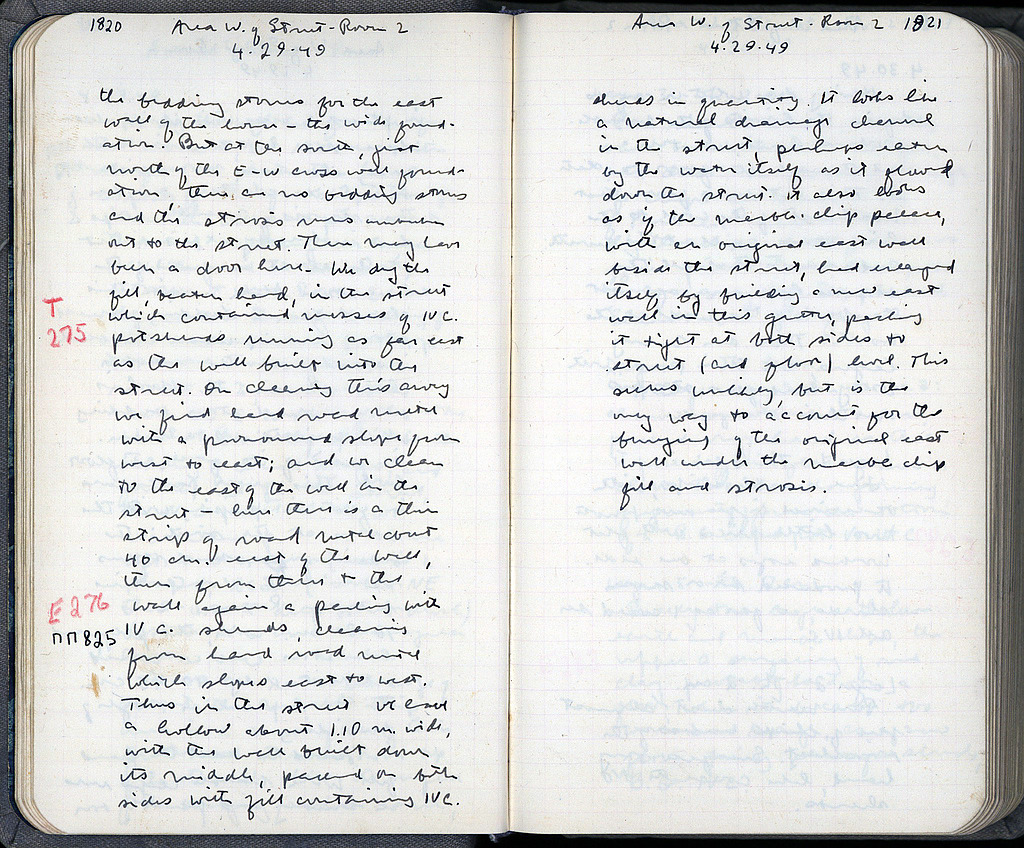 1820 Area W. of Street - Room 2
4.29.49
the bedding stones for the east
wall of the house - the wide found-
ation. But at the south, just
north of the E-W cross wall found-
ation, there are no bedding stones
and the strosis runs
out to the street. There may have
been a door here. We dig the
fill, beaten hard, in the street
T
275
which contained masses of IV C.
potsherds running as far east
as the wall built into the
street. On clearing this away
we find hard road metal
with a pronounced slope from
west to east; and we clean
to the east of the wall in the
street - here there is a thin
strip of road metal about
40 cm. east of the wall,
then from there to the
E 276
wall again a packing with
ΠΠ 825
IV C. sherds clearing
from hard road metal
which slopes east to west.
Thus in the street we have
a hollow about 1.10 m. wide,
with the wall built down
its middle, packed on both
sides with fill containing IV C.
Area W. of Street - Room 2 1821
4.29.49
sherds in quantity. It looks like
a natural drainage channel
in the street, perhaps eaten
by the water itself as it flowed
down the street. It also looks
as if the marble-chip
with an original east wall
beside the street, had enlarged
itself by building a new east
wall in this gutter, packing
it tight at both sides to
street (and floor) level. This
seems unlikely, but is the
only way to account for the
burying of the original east
wall under the marble chip
fill and strosis.